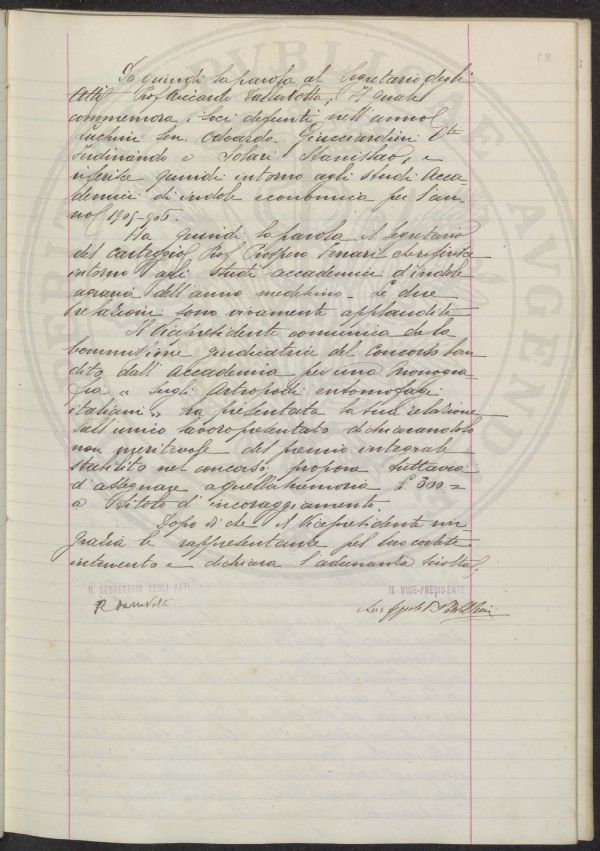 Dà quindi la parola al Segretario degli
Atti Prof. Riccardo Dallavolta, il quale
commemora i Soci defunti nell'anno
Luchini Sen. Odoardo - Guicciardini Cte
Ferdinando e Solari Stanislao, e
riferisce quindi intorno agli studi Acca-
demici di indole economica per l'an-
no 1905-906.
Ha quindi la parola il Segretario
del carteggio Prof. Prospero Ferrari che riferisce
intorno agli studi accademici d'indole
agraria dell'anno medesimo. Le due
relazioni sono vivamente applaudite
Il Vicepresidente comunica che la
Commissione giudicatrice del Concorso ban-
dito dall'Accademia per una Monogra-
fia " sugli Artropodi entomofagi
italiani " ha presentata la sua relazione
sull'unico lavoro presentato dichiarandolo
non meritevole del premio integrale
stabilito nel concorso, propone tuttavia
d'assegnare a quella memoria £ 300 =
a titolo d'incoraggiamento.
Dopo di che il Vicepresidente rin-
grazia le rappresentante pel loro cortese
intervento e dichiara l'adunanza sciolta.
IL SEGRETARIO DEGLI ATTI
IL VICE-PRESIDENTE
R Dallavolta